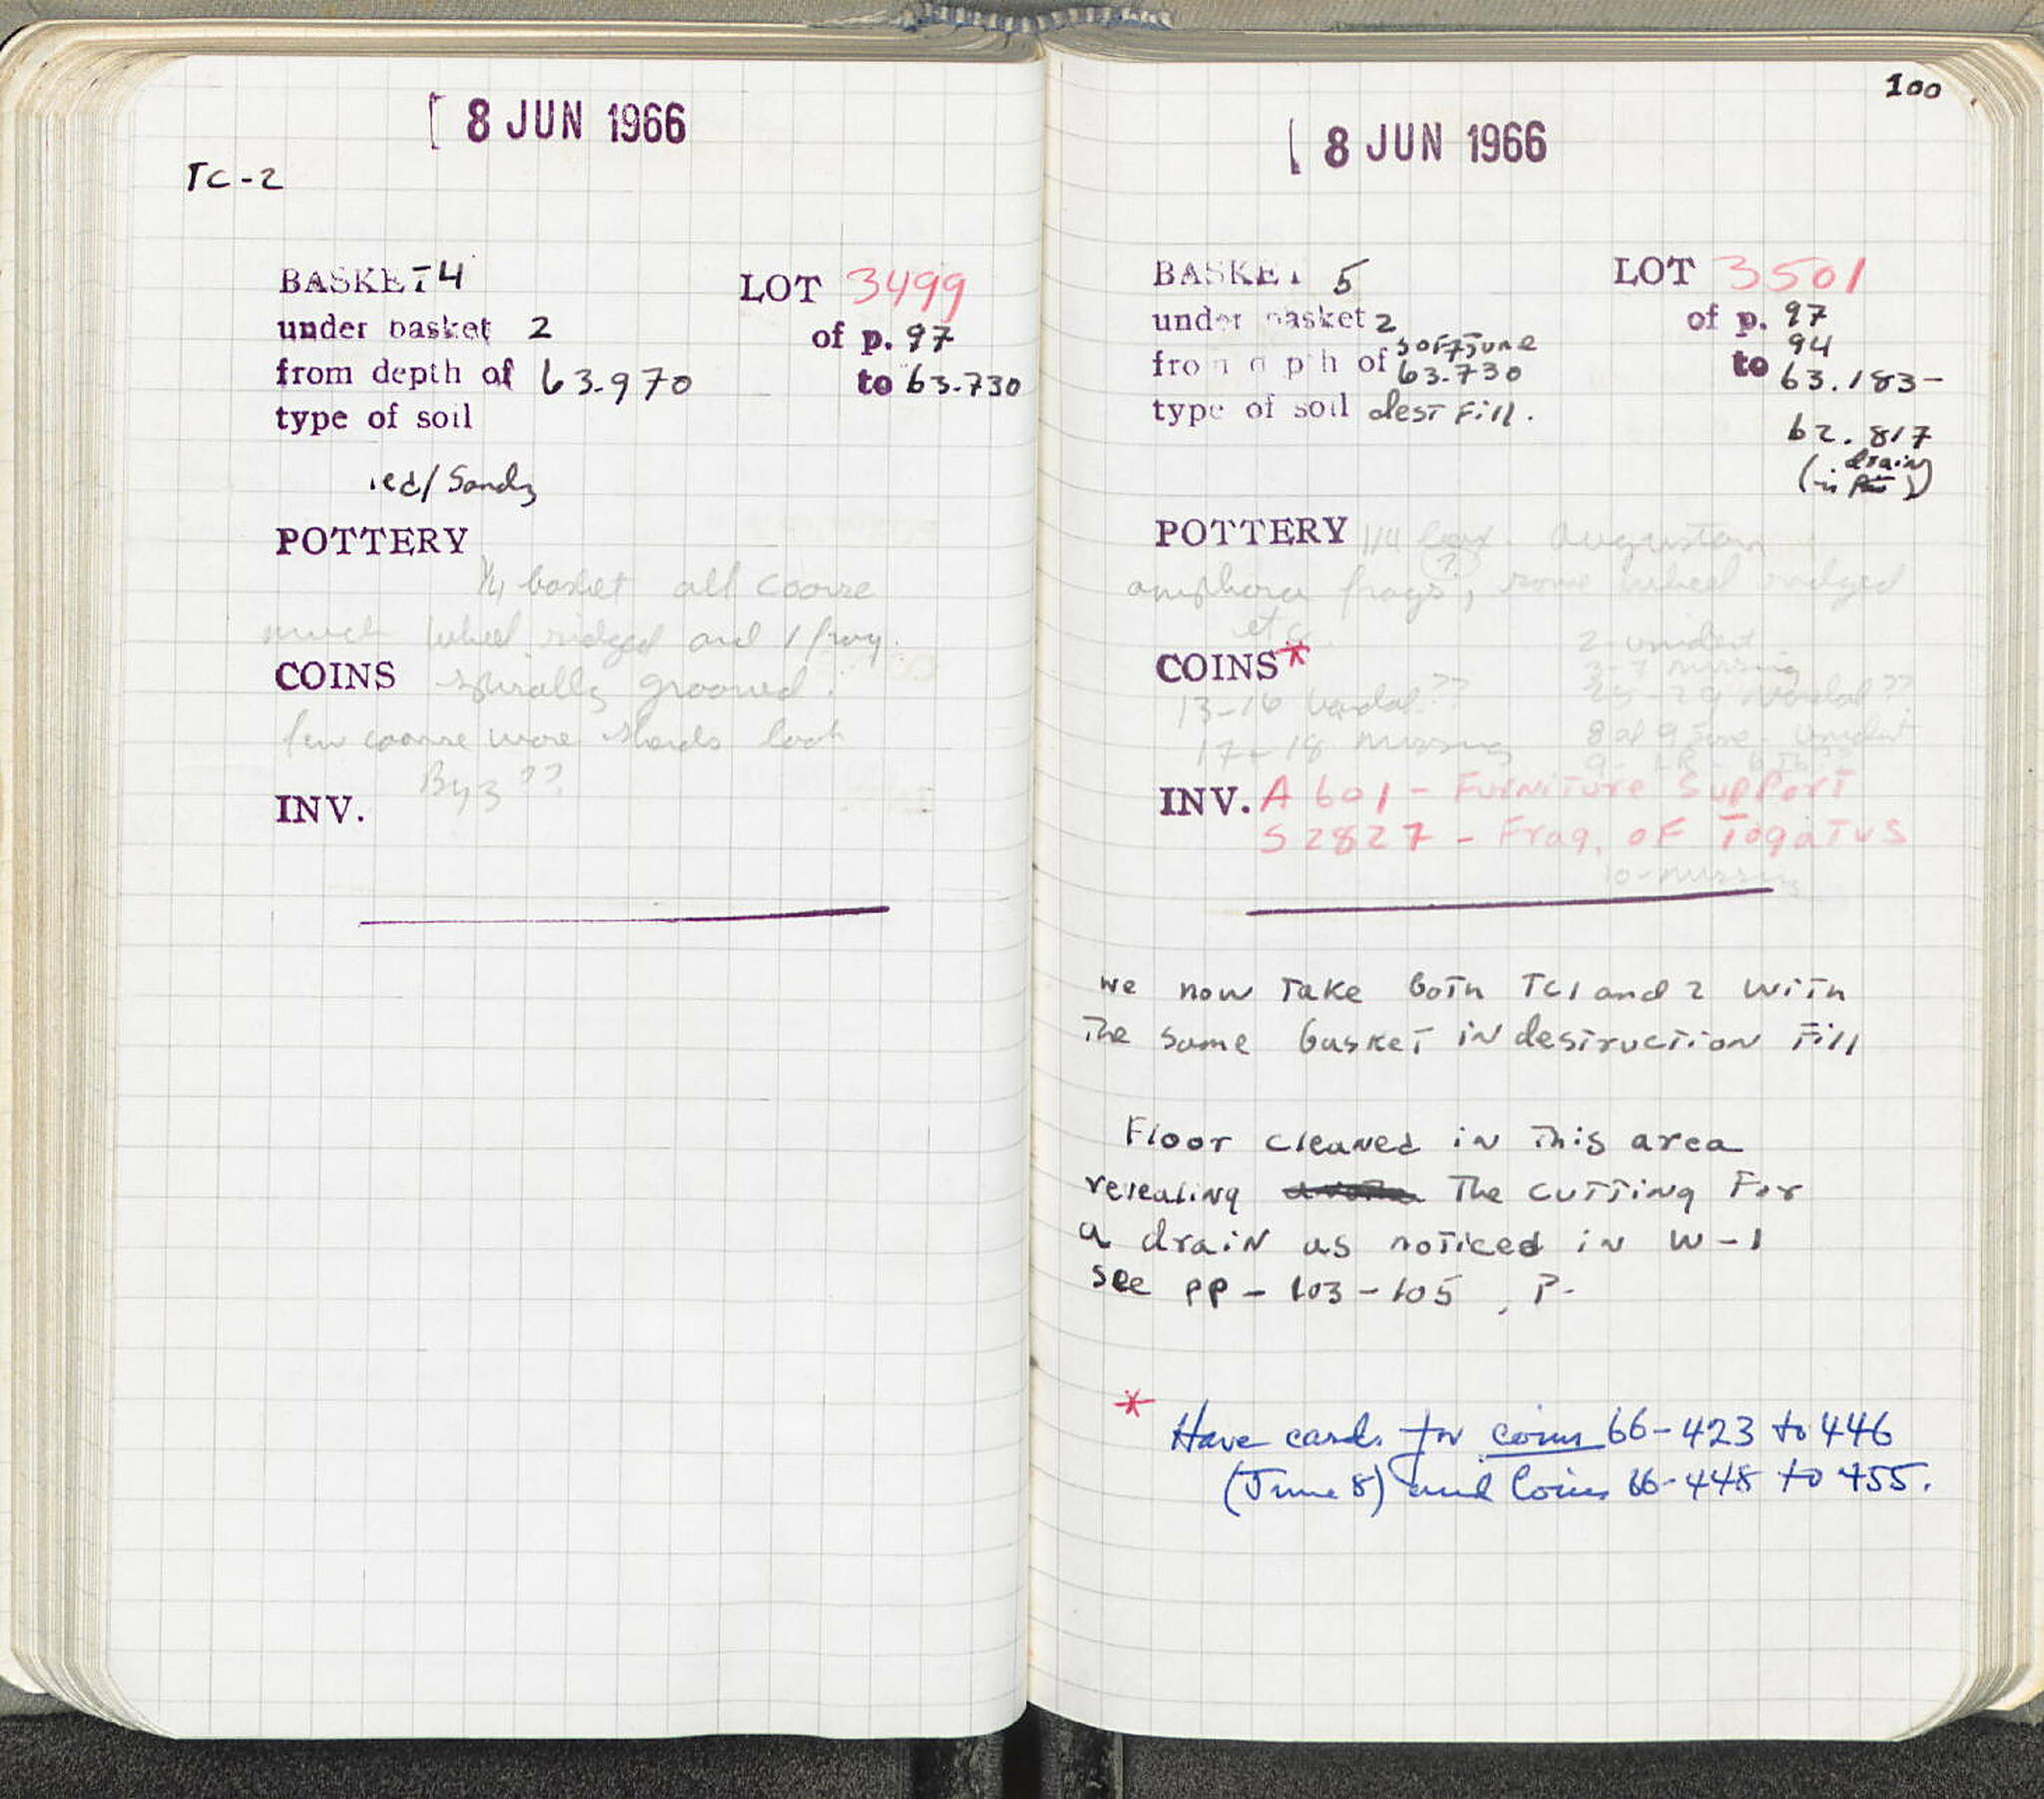 8 JUN 1966
TC-2
BASKET 4 LOT 3499
under basket 2 of p. 97
from depth of 63.970 to 63.730
type of soil
red/Sandy
POTTERY
1/4 basket all coarse
much wheel ridged and 1 frag.
COINS spirally grooved.
few coarse ware sherds look
Byz ??
INV.
100
8 JUN 1966
BASKET 5 LOT 3501
under basket 2 of p. 97
of 7 June 94
from depth of 63.730 to 63.183-
type of soil dest Fill.
62.817
(in drain)
POTTERY 1/4 box. Augustan
(?)
amphora frags, some wheel ridged
etc.
2-unident
COINS* 3-7 missing
13-16 Vandal?? 25-29 Vandal??
17-18 missing 8 of 9 June - unident
INV. A 601 - Furniture Support
S 2827 - Frag. of Togatus
10-missing
we now Take both TC1 and 2 with
The same basket in destruction Fill
Floor cleaned in This area
revealing The cutting For
a drain as noticed in W-1
See pp-103-105, P-
* Have cards for coins 66-423 to 446
(June 8) and Coins 66-448 to 455.